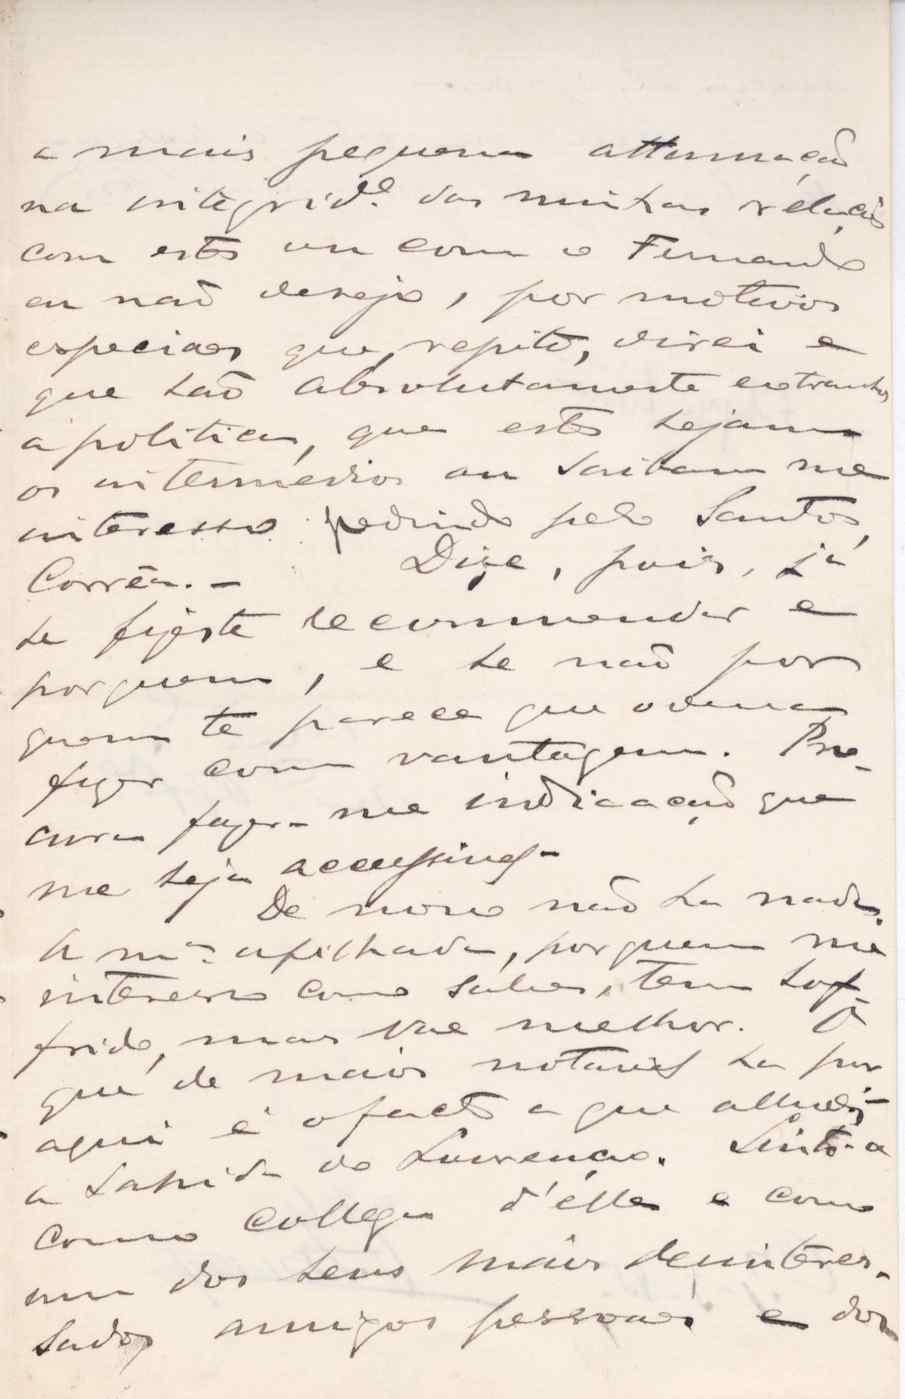 a mais pequena attenuação
na integrid.e das minhas relações
com este ou com o Fernando
eu não desejo, por motivos
especiaes que, repito, direi e
que são absolutamente extranhos
á politica, que estes sejam
os intermedios ou saibam me
interesso pedindo pelo Santos
Corrêa. —
Dize, pois, já
te fizeste recommendar e
por quem, e se não por
quem te parece que o devia
fazer com vantagem. Pro-
cura fazer-me indicação que
me seja accessivel —
De novo não ha nada.
A m.a afilhada, por quem me
interesso como sabes, tem sof-
frido, mas vae melhor. O
que de mais notavel ha por
aqui é o facto a que alludi —
a sahida do Lourenço. Sinto-a
como collega d'élle e como
um dos seus mais desinteres-
sados amigos pessoaes e dos